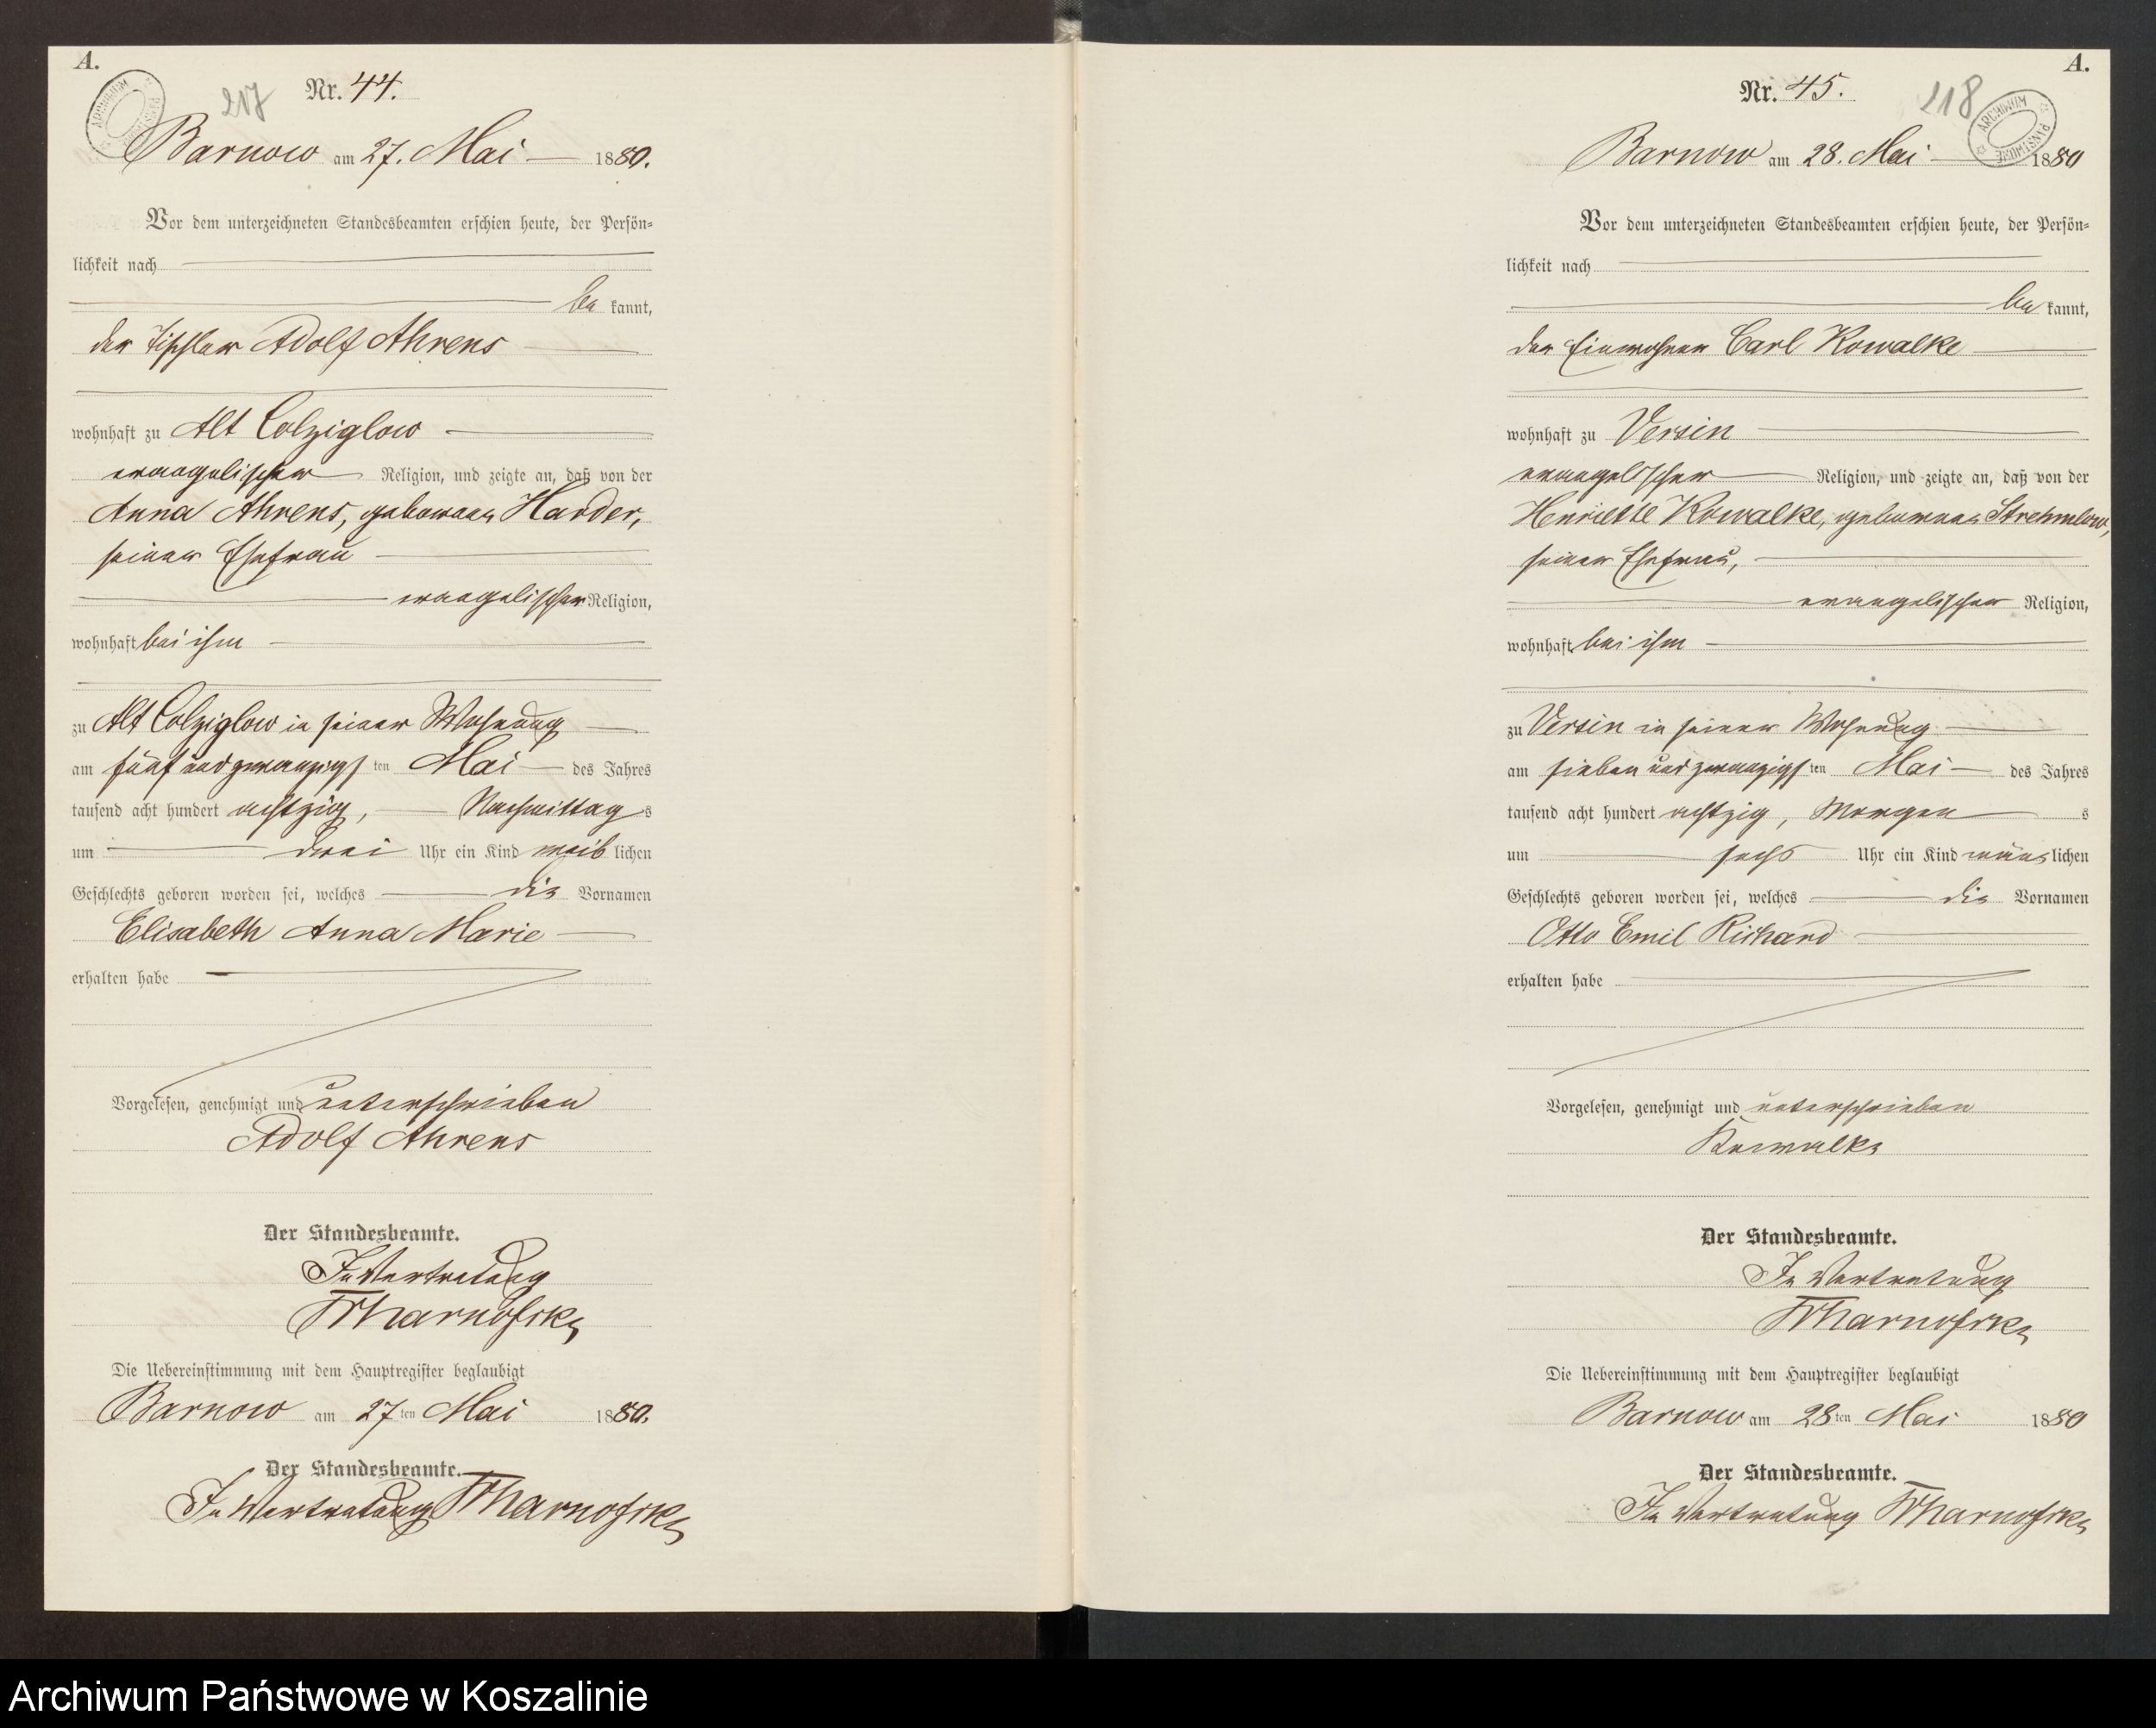 A.
217
Nr. 44.
Barnow am 27. Mai 1880.
Vor dem unterzeichneten Standesbeamten erschien heute, der Persön-
lichkeit nach
be kannt,
der Tischler Adolf Ahrens
wohnhaft zu Alt Colziglow
evangelischer Religion, und zeigte an, daß von der
Anna Ahrens, geborene Harder,
seiner Ehefrau
evangelischer Religion,
wohnhaft bei ihm
zu Alt Colziglow in seiner Wohnung
am fünf und zwanzigs ten Mai des Jahres
tausend acht hundert achtzig, Nachmittag s
um drei Uhr ein Kind weib lichen
Geschlechts geboren worden sei, welches die Vornamen
Elisabeth Anna Marie
erhalten habe
Vorgelesen, genehmigt und unterschrieben
Adolf Ahrens
Der Standesbeamte.
In Vertretung
Die Uebereinstimmung mit dem Hauptregister beglaubigt
Barnow am 27 ten Mai 1880.
Der Standesbeamte.
In Vertretung
A.
218
ARCHIWUM PAŃSTWOWE
Nr. 45.
Barnow am 28. Mai 1880
Vor dem unterzeichneten Standesbeamten erschien heute, der Persön-
lichkeit nach
be kannt,
der Einwohner Carl Kowalke
wohnhaft zu Versin
evangelischer Religion, und zeigte an, daß von der
Henriette Kowalke, geborene Strehmlow,
seiner Ehefrau,
evangelischer Religion,
wohnhaft bei ihm
zu Versin in seiner Wohnung
am sieben und zwanzigs ten Mai des Jahres
tausend acht hundert achtzig, Morgen s
um sechs Uhr ein Kind männ lichen
Geschlechts geboren worden sei, welches die Vornamen
Otto Emil Richard
erhalten habe
Vorgelesen, genehmigt und unterschrieben
Kowalke
Der Standesbeamte.
In Vertretung
Die Uebereinstimmung mit dem Hauptregister beglaubigt
Barnow am 28 ten Mai 1880
Der Standesbeamte.
In Vertretung
Archiwum Państwowe w Koszalinie